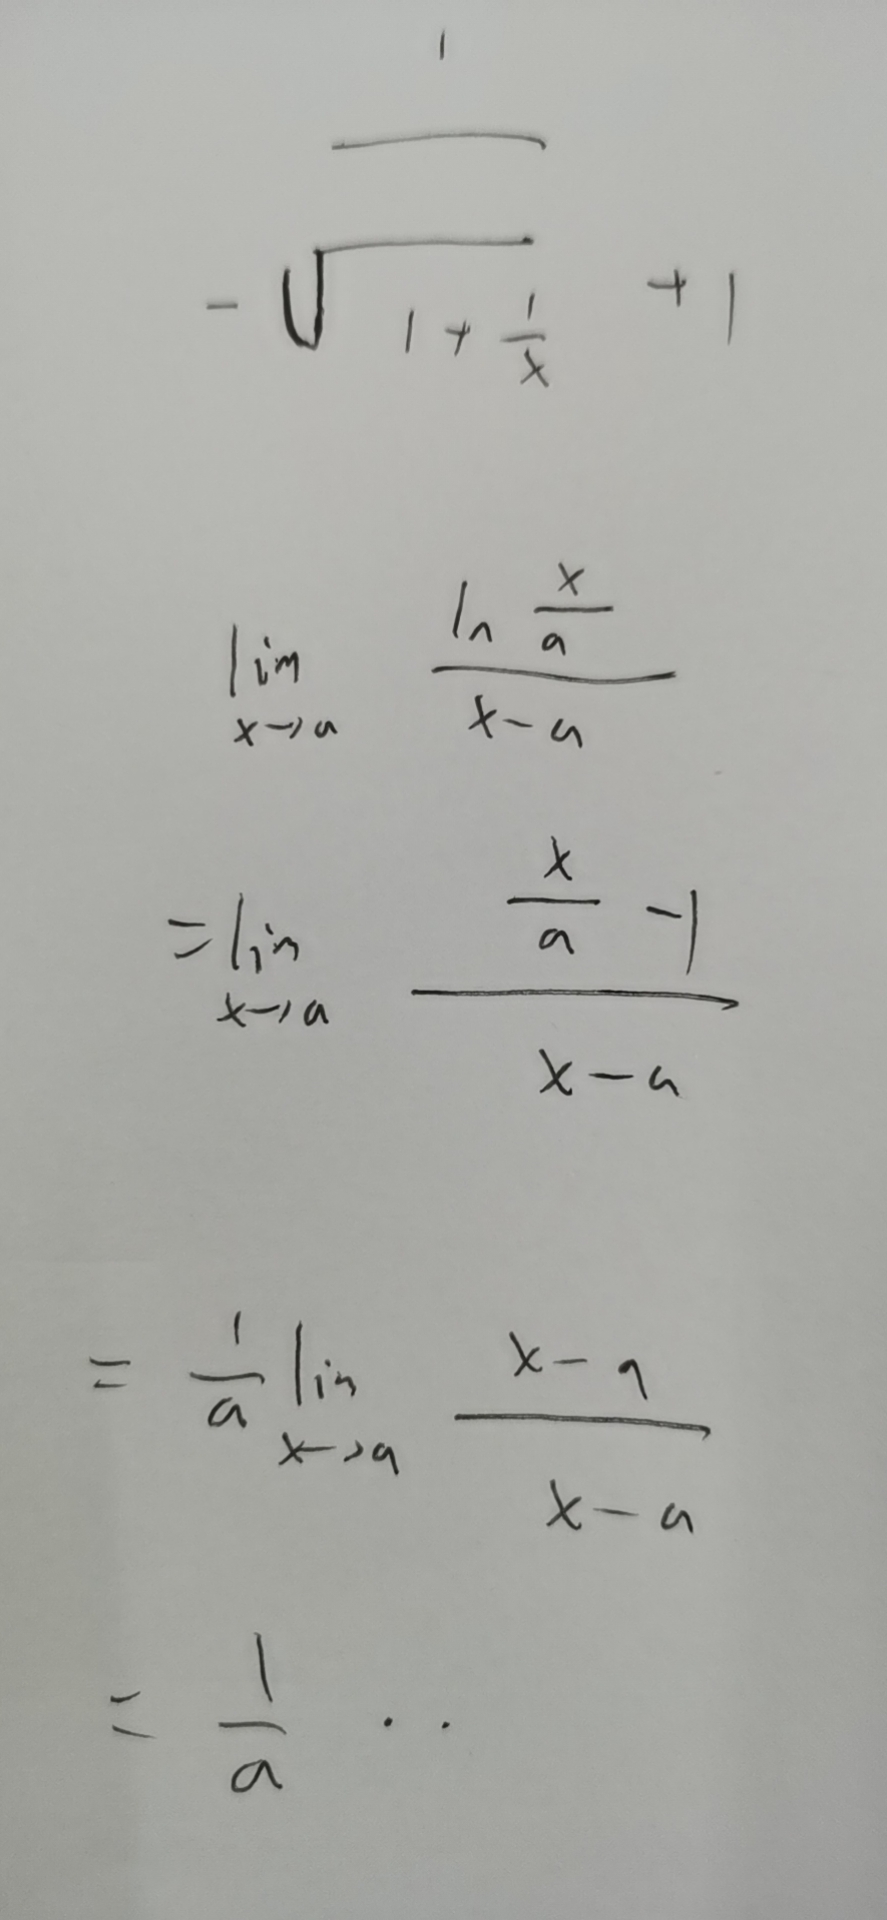 1
- √(1 + 1/x) + 1
lim x→a (ln x/a)/(x-a)
= lim x→a (x/a - 1)/(x-a)
= 1/a lim x→a (x-a)/(x-a)
= 1/a . .